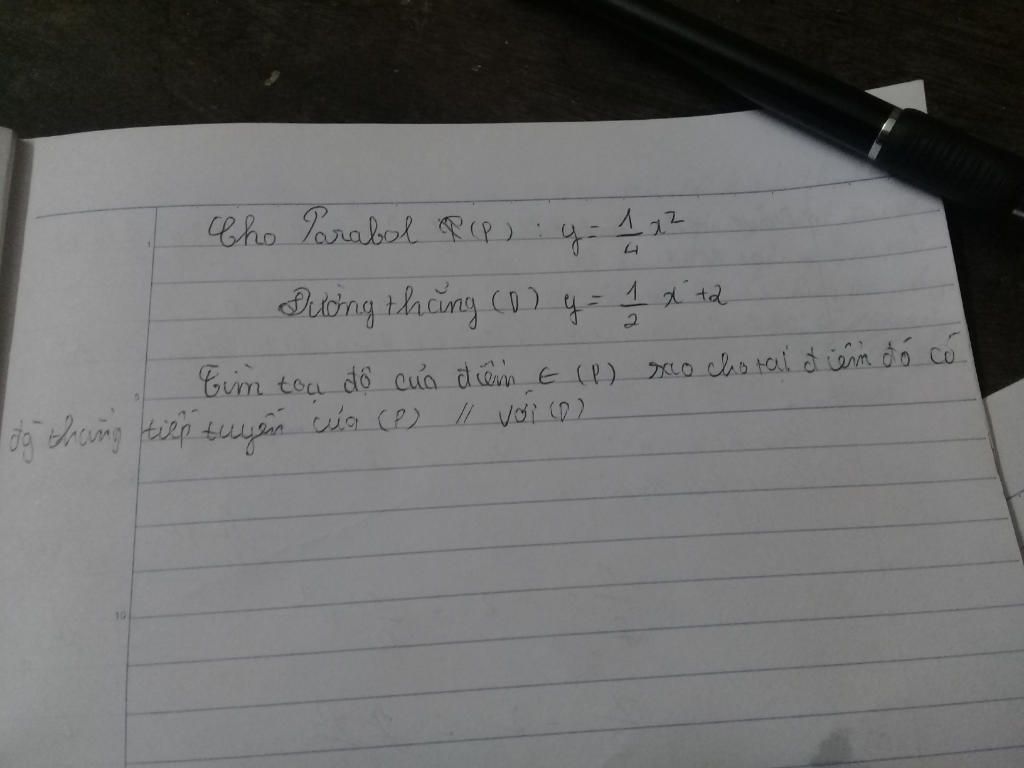 Cho Parabol (P) : y = 1/4 x²
Đường thẳng (D) y = 1/2 x + 2
Tìm toạ độ của điểm ∈ (P) sao cho tại điểm đó có
đg thẳng tiếp tuyến của (P) // với (D)
10